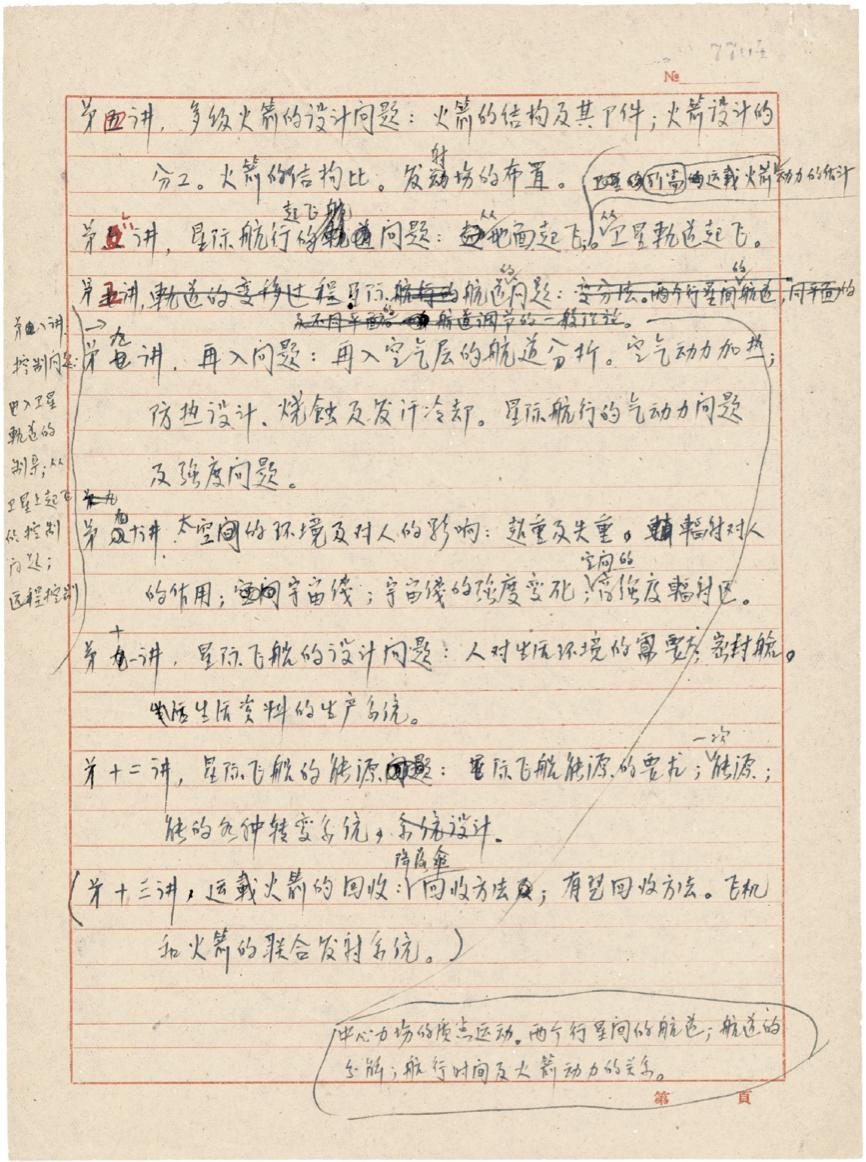 №
第四讲,多级火箭的设计问题:火箭的结构及其部件;火箭设计的
分工。火箭的结构比。发射场的布置。
运载火箭动力的估计
第六讲,星际航行的起飞航道问题:从地面起飞。从卫星軌道起飞。
第五讲,軌道的变移过程。星际航行的航道问题:变分法。两个行星间的航道,同平面的
及不同平面的 航道调节的一般理论。
→
第九讲,再入问题:再入空气层的航道分析。空气动力加热;
防热设计、烧蚀及发汗冷却。星际航行的气动力问题
及强度问题。
第八讲,
控制问题:
进入卫星
軌道的
制导;从
卫星上起飞
的控制
问题;
远程控制
第九
第十讲,太空间的环境及对人的影响:超重及失重。輻射对人
的作用;宇宙线;宇宙线的强度变化;空间的高强度輻射区。
第十一讲,星际飞船的设计问题:人对生活环境的需要;密封舱。
生活资料的生产系统。
第十二讲,星际飞船的能源问题:星际飞船能源的要求;一次能源;
能的各种转变系统,系统设计.
(第十三讲,运载火箭的回收:降落伞回收方法;有翼回收方法。飞机
和火箭的联合发射系统。)
中心力场的质点运动。两个行星间的航道;航道的
分解;航行时间及火箭动力的关系。
第 頁